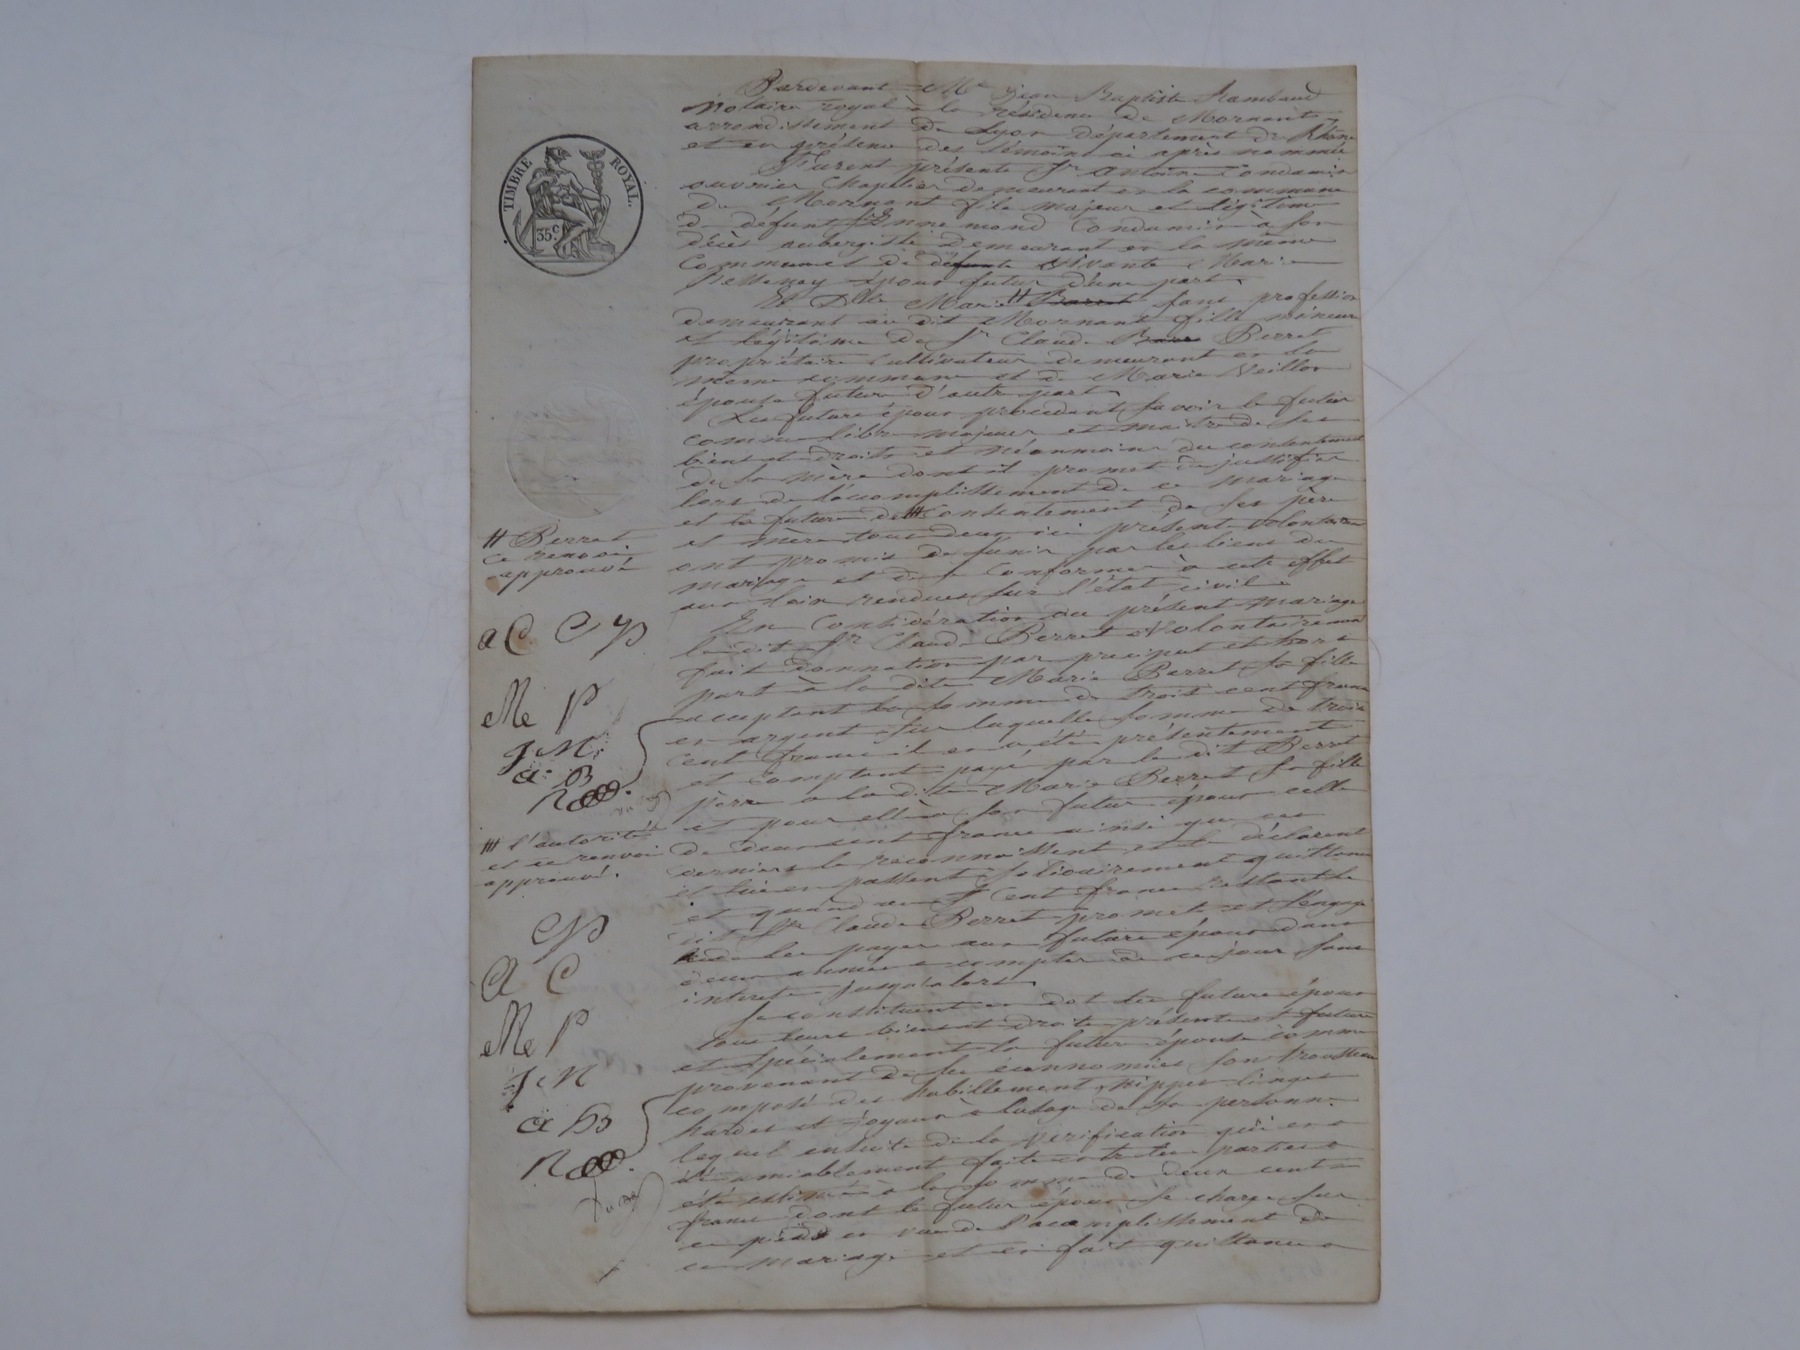 TIMBRE ROYAL.
35c.
Pardevant Me Jean Baptiste Rambaud
Notaire royal à la résidence de Mornant
arrondissement de Lyon département du Rhône
et en présence des témoins ci après nommés
Furent présents Sr Antoine Condamin
ouvrier chapelier demeurant en la commune
de Mornant fils majeur et légitime
de défunt Ennemond Condamin à son
décès aubergiste demeurant en la même
commune et de défunte vivante Marie
époux futur d'une part
Et Dlle Marie # sans profession
demeurant au dit Mornant fille mineure
et légitime de Sr Claude Perret
propriétaire cultivateur demeurant en la
même commune et de Marie Veillon
épouse future d'autre part
Les futurs époux procédant savoir le futur
comme libre majeur et maitre de ses
biens et droits et néanmoins du consentement
de sa mère dont il promet de justifier
lors de l'accomplissement de ce mariage
et la future de ## consentement de ses père
et mère tous deux ici présent volontaires
ont promis de s'unir par les liens du
mariage et de se conformer à cete effet
aux loix rendues sur l'état civil
En considération du présent mariage
le dit Sr Claude Perret volontairement
fait donnation par preciput et hors
part à la dite Marie Perret sa fille
acceptant la somme de trois cent francs
en argent sur laquelle somme de trois
cent francs il en a été présentement
et comptant payé par le dit Perret
père a la dite Marie Perret sa fille
et pour elle à son futur époux celle
de deux cent francs ainsi que ces
derniers le reconnaissent et le déclarent
et lui en passent solidairement quittance
et quand aux cent francs restant le
dit Sr Claude Perret promet et s'engage
de les payer aux futurs époux dans
deux années a compter de ce jour sans
interets jusqu'alors
Se constituent en dot les futurs époux
tous leurs biens et droits présents et futurs
et spécialement la future épouse comme
provenant de ses économies son trousseau
composé des habillement nippes linges
hardes et joyaux à l'usage de sa personne
lequel ensuite de la vérification qui en a
été amiablement faite entre les parties a
été estimé à la somme de deux cent
francs dont le futur époux se charge sur
ce pied en vue de l'acomplissement de
ce mariage et en fait quittance
# Perret
ce renvoi
approuvé
a C. C p
Me P
J. N.
a. B
R
## l'autorité
et ce renvoi
approuvé.
C p
a C
Me P
J. N
a B
R